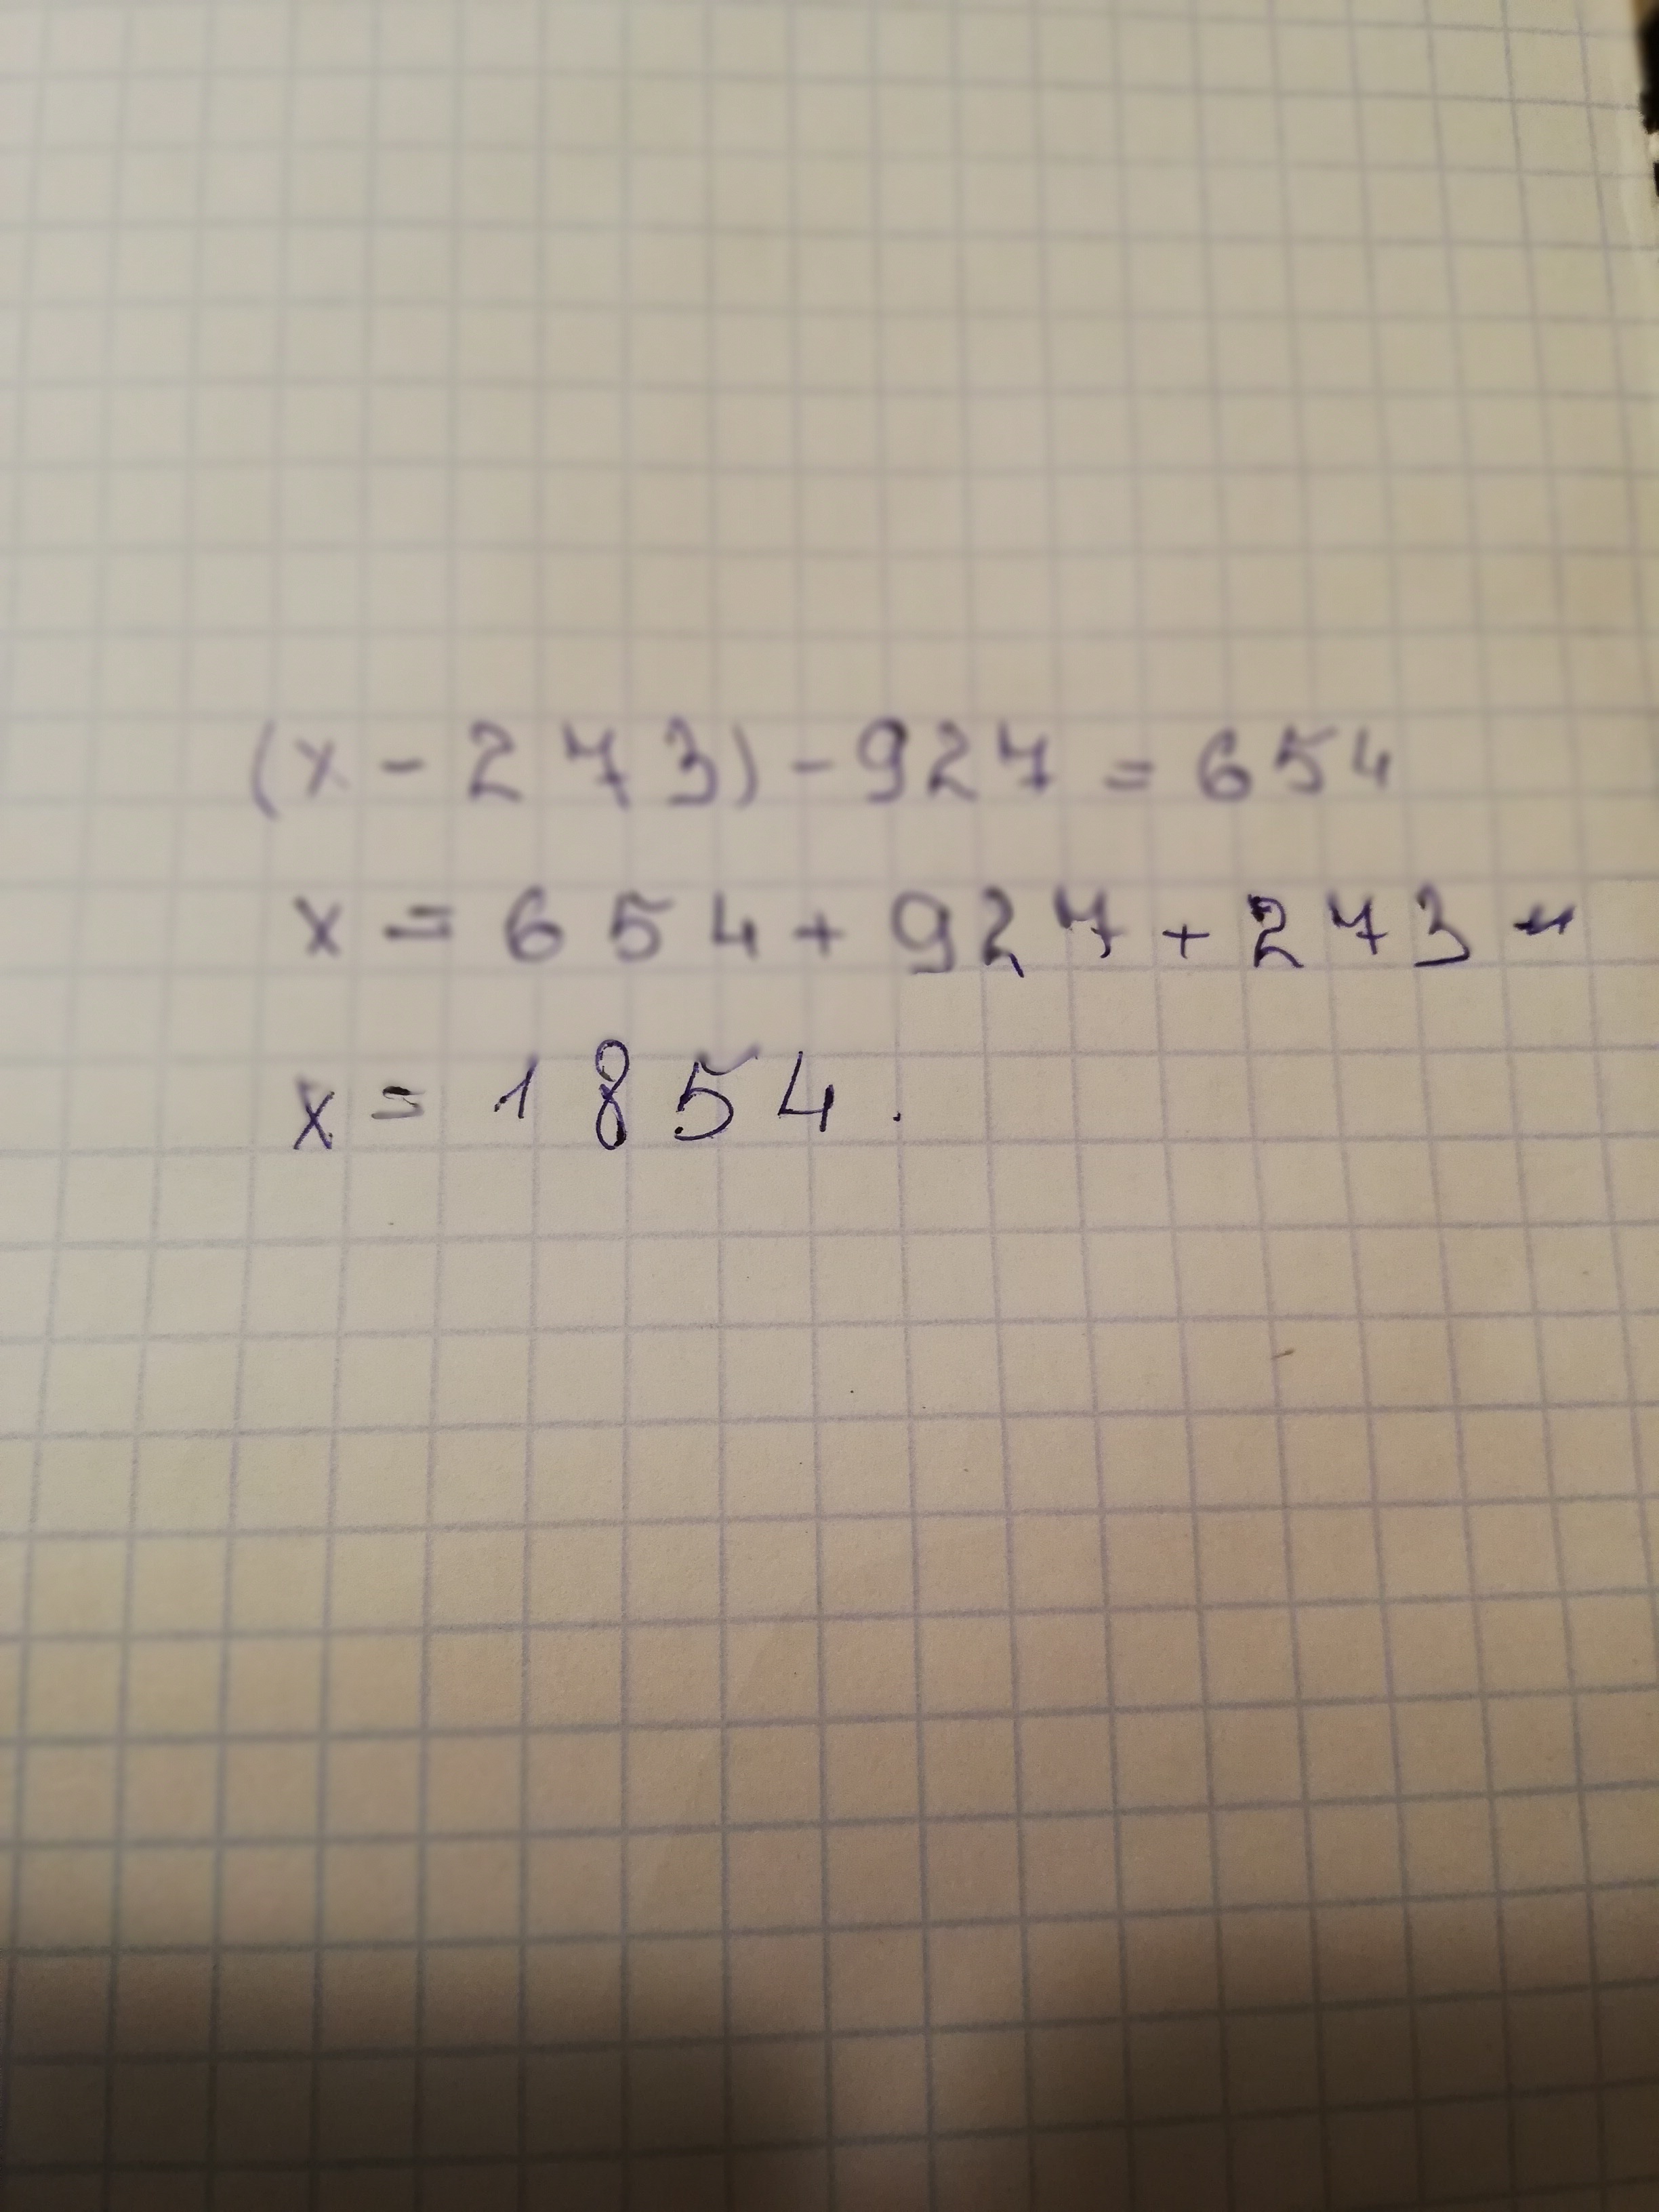 (x - 273) - 927 = 654
x = 654 + 927 + 273
x = 1854.